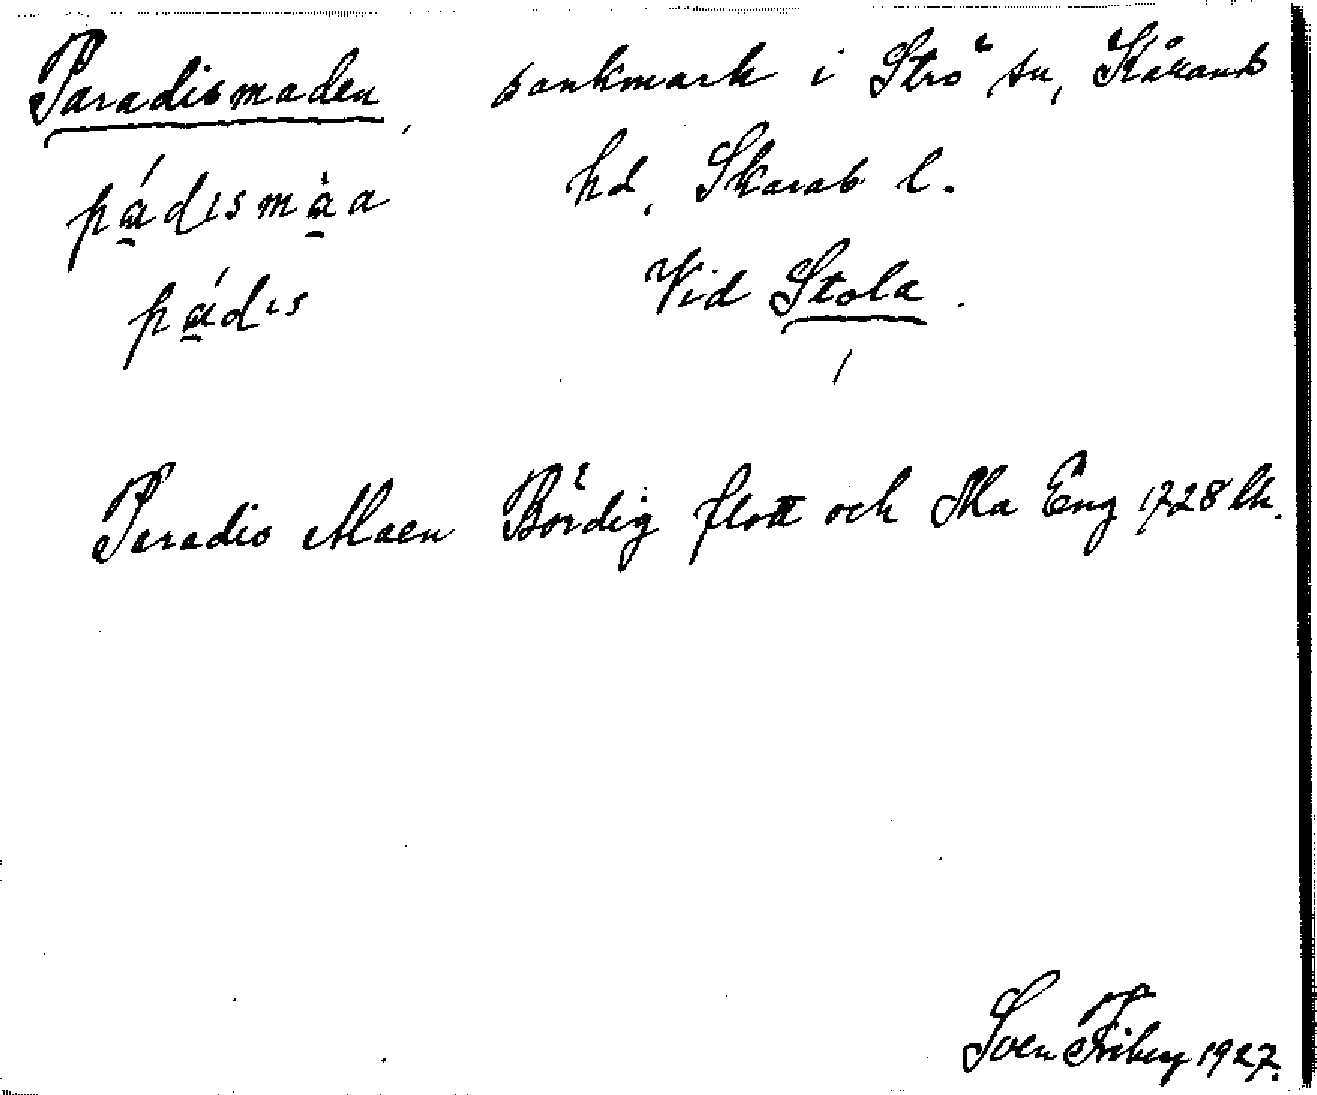 Paradismaden, sankmark i Strö sn, Kåkands
pádismàa hd, Skarab l.
pádis Vid Stola.
Paradis Maen Bördig flott och Ma Eng 1728 lk.
Sven Friberg 1927.